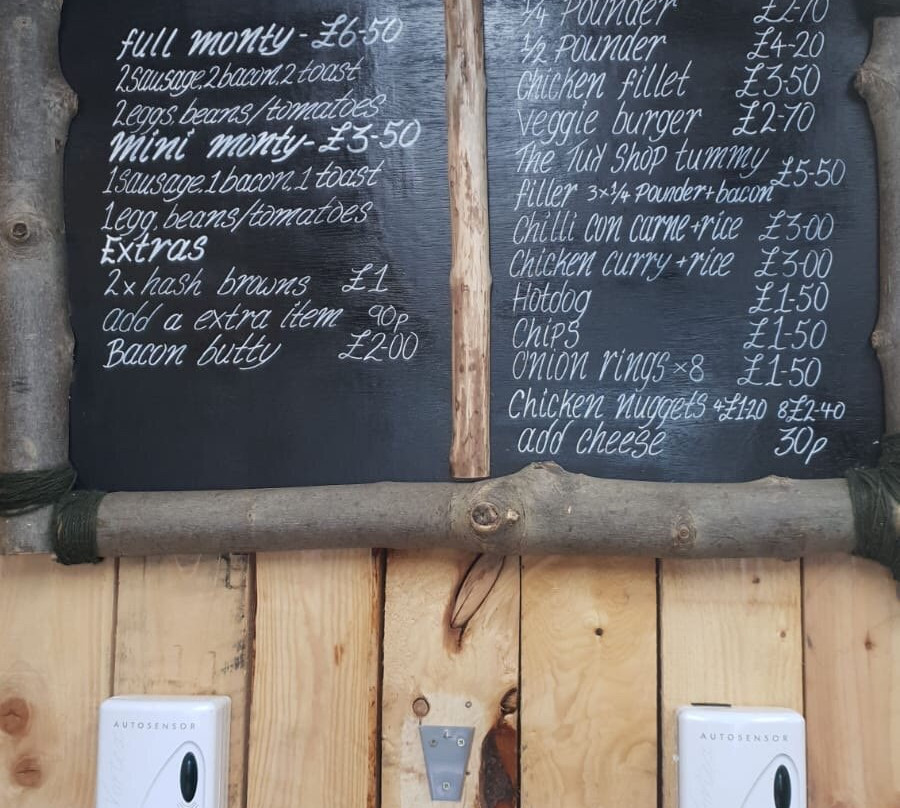 full monty - £6-50
2 sausage, 2 bacon, 2 toast
2 eggs, beans/tomatoes
Mini monty - £3-50
1 sausage, 1 bacon, 1 toast
1 egg, beans/tomatoes
Extras
2x hash browns £1
add a extra item 90p
Bacon butty £2-00
1/4 Pounder £2-70
1/2 Pounder £4-20
Chicken fillet £3-50
Veggie burger £2-70
The Tuk Shop tummy
filler 3x1/4 Pounder+bacon £5-50
Chilli con carne+rice £3-00
Chicken curry+rice £3-00
Hotdog £1-50
Chips £1-50
Onion rings x8 £1-50
Chicken nuggets 4£1-20 8£2-40
add cheese 30p
AUTOSENSOR
AUTOSENSOR